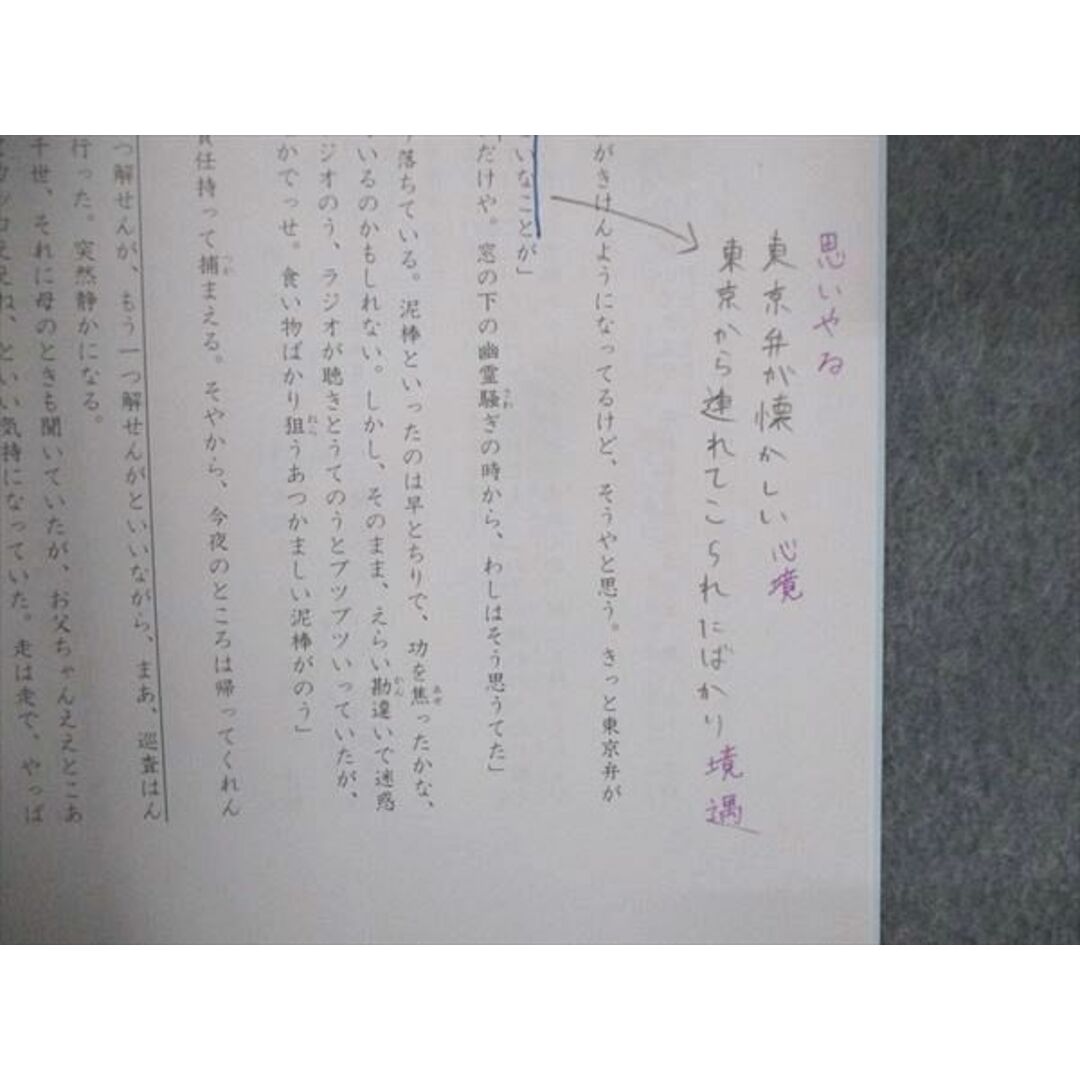 思いやる
東京弁が懐かしい心境
東京から連れてこられたばかり境遇
がきけんようになってるけど、そうやと思う。きっと東京弁が
いなことが」
だけや。窓の下の幽霊騒ぎの時から、わしはそう思うてた」
落ちている。泥棒といったのは早とちりで、功を焦ったかな、
いるのかもしれない。しかし、そのまま、えらい勘違いで迷惑
ジオのう、ラジオが聴きとうてのうとブツブツいっていたが、
かでっせ。食い物ばかり狙うあつかましい泥棒がのう」
責任持って捕まえる。そやから、今夜のところは帰ってくれん
つ解せんが、もう一つ解せんがといいながら、まあ、巡査はん
行った。突然静かになる。
千世、それに母のときも聞いていたが、お父ちゃんええとこあ
ね、といい気持になっていた。走は走で、やっぱ